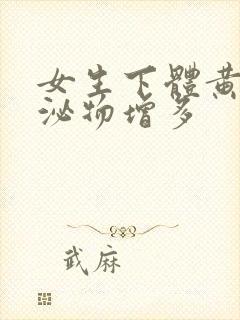 女生下體黃
泌物增多
武麻